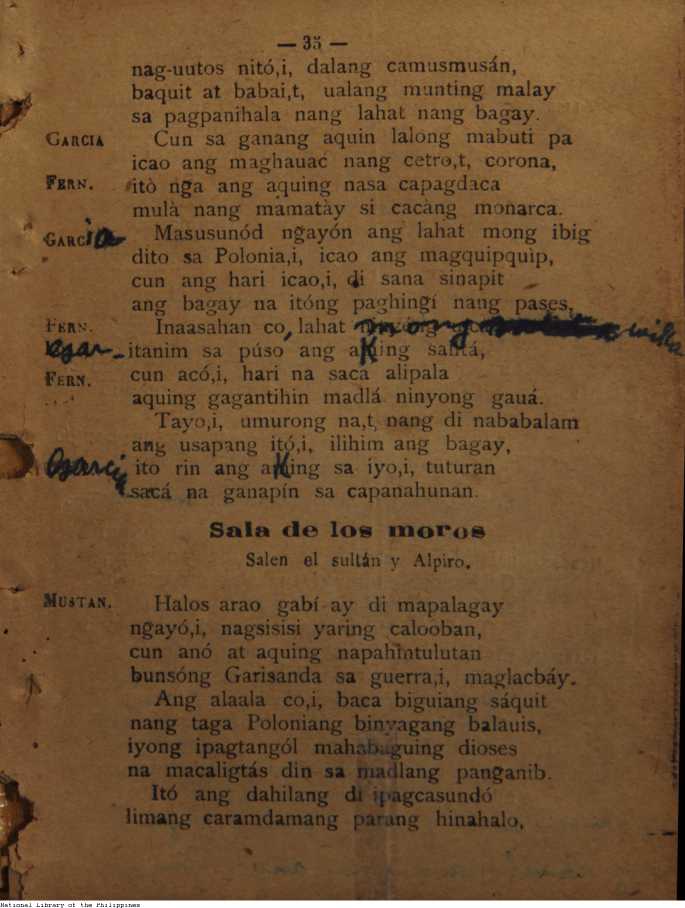 — 35 —
nag-uutos nitó,i, dalang camusmusán,
baquit at babai,t, ualang munting malay
sa pagpanihala nang lahat nang bagay.
GARCIA Cun sa ganang aquin lalong mabuti pa
icao ang maghauac nang cetro,t, corona,
FERN. itò nga ang aquing nasa capagdaca
mulà nang mamatày si cacàng monarca.
GARCia Masusunód ngayón ang lahat mong ibig
dito sa Polonia,i, icao ang magquipquip,
cun ang hari icao,i, di sana sinapit
ang bagay na itóng paghingí nang pases,
FERN. Inaasahan co, lahat mong wika
Gar- itanim sa púso ang aKing salitá,
FERN. cun acó,i, hari na sacá alipala
aquing gagantihin madlá ninyong gauá.
Tayo,i, umurong na,t, nang di nababalam
ang usapang itó,i, ilihim ang bagay,
Garcia ito rin ang aKing sa iyo,i, tuturan
sacá na ganapín sa capanahunan.
Sala de los moros
Salen el sultán y Alpiro.
MUSTAN. Halos arao gabí ay di mapalagay
ngayó,i, nagsisisi yaring calooban,
cun anó at aquing napahintulutan
bunsóng Garisanda sa guerra,i, maglacbáy.
Ang alaala co,i, baca biguiang sáquit
nang taga Poloniang binyagang balauis,
iyong ipagtangól mahabaguing dioses
na macaligtás din sa madlang panganib.
Itó ang dahilang di ipagcasundó
limang caramdamang parang hinahalo,
National Library of the Philippines